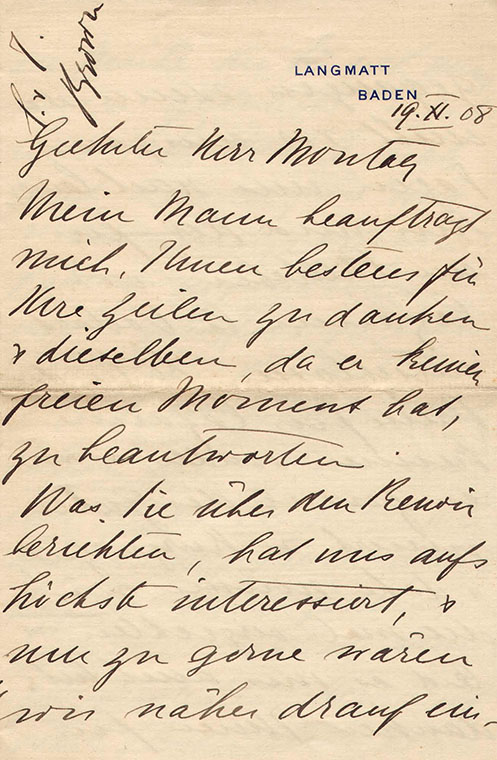 LANGMATT
BADEN
19. XI. 08
Brown
Geehrter Herr Montag
Mein Mann beauftragt
mich, Ihnen bestens für
Ihre Zeilen zu danken
& dieselben, da er keinen
freien Moment hat,
zu beantworten.
Was Sie über den Renoir
berichten, hat uns aufs
höchste interessiert, &
nur zu gerne wären
wir näher drauf ein-